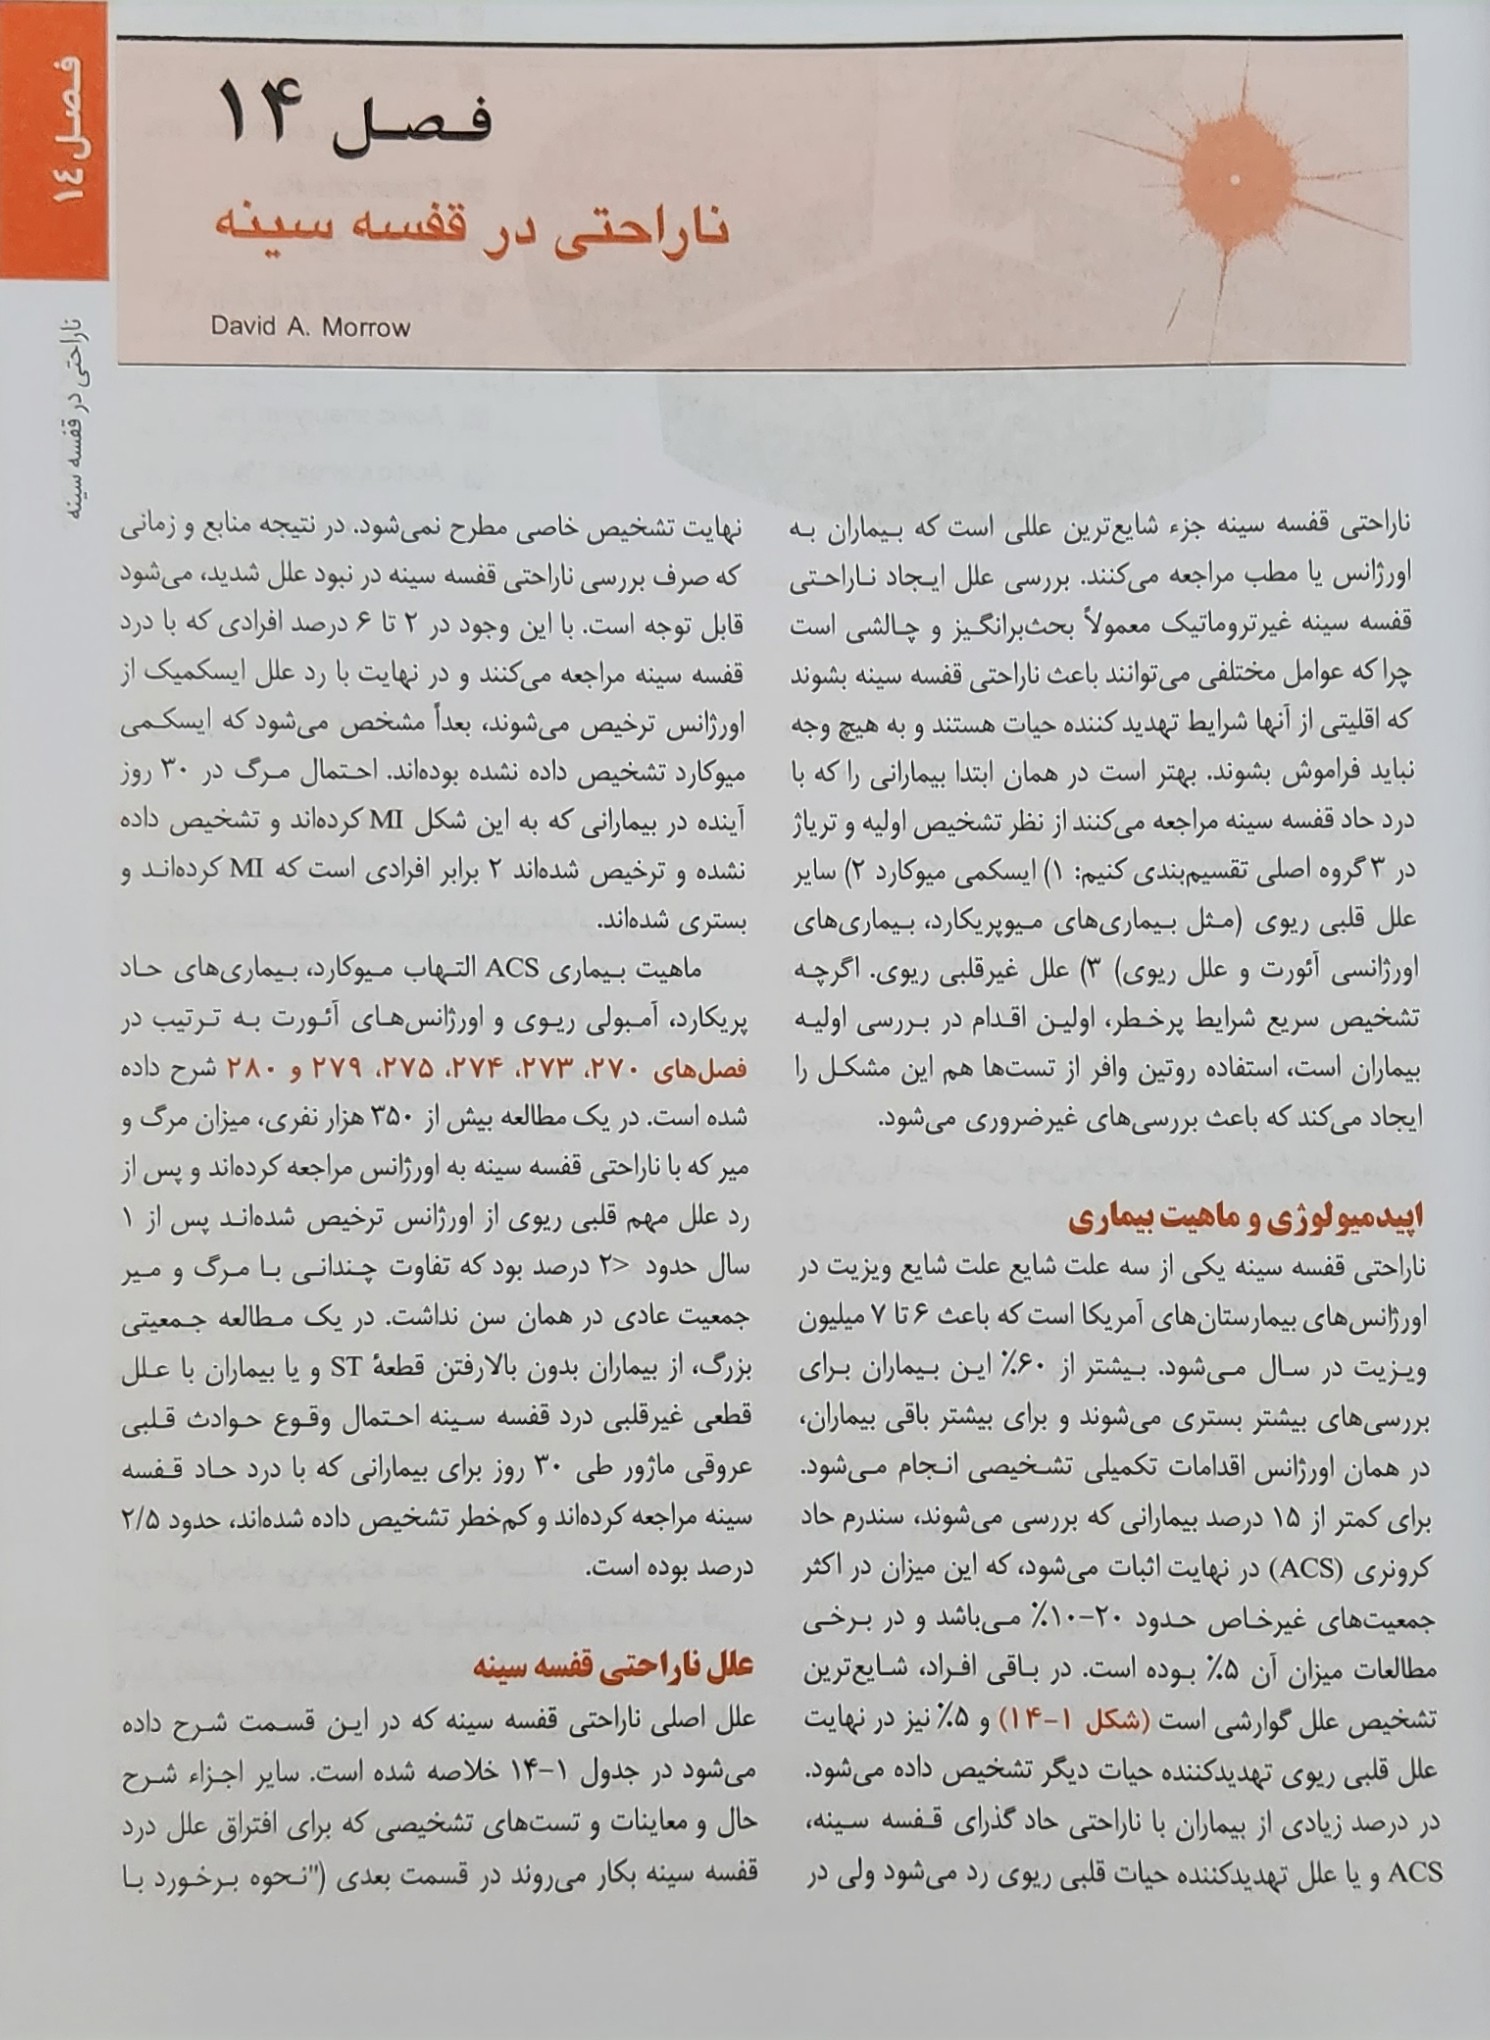 فصل ۱۴
ناراحتی در قفسه سینه
فصل ۱۴
ناراحتی در قفسه سینه
David A. Morrow
ناراحتی قفسه سینه جزء شایع‌ترین عللی است که بیماران به
اورژانس یا مطب مراجعه می‌کنند. بررسی علل ایجاد ناراحتی
قفسه سینه غیرتروماتیک معمولاً بحث‌برانگیز و چالشی است
چرا که عوامل مختلفی می‌توانند باعث ناراحتی قفسه سینه بشوند
که اقلیتی از آنها شرایط تهدید کننده حیات هستند و به هیچ وجه
نباید فراموش بشوند. بهتر است در همان ابتدا بیمارانی را که با
درد حاد قفسه سینه مراجعه می‌کنند از نظر تشخیص اولیه و تریاژ
در ۳ گروه اصلی تقسیم‌بندی کنیم: ۱) ایسکمی میوکارد ۲) سایر
علل قلبی ریوی (مثل بیماری‌های میوپریکارد، بیماری‌های
اورژانسی آئورت و علل ریوی) ۳) علل غیرقلبی ریوی. اگرچه
تشخیص سریع شرایط پرخطر، اولین اقدام در بررسی اولیه
بیماران است، استفاده روتین وافر از تست‌ها هم این مشکل را
ایجاد می‌کند که باعث بررسی‌های غیرضروری می‌شود.
اپیدمیولوژی و ماهیت بیماری
ناراحتی قفسه سینه یکی از سه علت شایع علت شایع ویزیت در
اورژانس‌های بیمارستان‌های آمریکا است که باعث ۶ تا ۷ میلیون
ویزیت در سال می‌شود. بیشتر از ۶۰٪ این بیماران برای
بررسی‌های بیشتر بستری می‌شوند و برای بیشتر باقی بیماران،
در همان اورژانس اقدامات تکمیلی تشخیصی انجام می‌شود.
برای کمتر از ۱۵ درصد بیمارانی که بررسی می‌شوند، سندرم حاد
کرونری (ACS) در نهایت اثبات می‌شود، که این میزان در اکثر
جمعیت‌های غیرخاص حدود ۲۰-۱۰٪ می‌باشد و در برخی
مطالعات میزان آن ۵٪ بوده است. در باقی افراد، شایع‌ترین
تشخیص علل گوارشی است (شکل ۱-۱۴) و ۵٪ نیز در نهایت
علل قلبی ریوی تهدیدکننده حیات دیگر تشخیص داده می‌شود.
در درصد زیادی از بیماران با ناراحتی حاد گذرای قفسه سینه،
ACS و یا علل تهدیدکننده حیات قلبی ریوی رد می‌شود ولی در
نهایت تشخیص خاصی مطرح نمی‌شود. در نتیجه منابع و زمانی
که صرف بررسی ناراحتی قفسه سینه در نبود علل شدید، می‌شود
قابل توجه است. با این وجود در ۲ تا ۶ درصد افرادی که با درد
قفسه سینه مراجعه می‌کنند و در نهایت با رد علل ایسکمیک از
اورژانس ترخیص می‌شوند، بعداً مشخص می‌شود که ایسکمی
میوکارد تشخیص داده نشده بوده‌اند. احتمال مرگ در ۳۰ روز
آینده در بیمارانی که به این شکل MI کرده‌اند و تشخیص داده
نشده و ترخیص شده‌اند ۲ برابر افرادی است که MI کرده‌اند و
بستری شده‌اند.
ماهیت بیماری ACS التهاب میوکارد، بیماری‌های حاد
پریکارد، آمبولی ریوی و اورژانس‌های آئورت به ترتیب در
فصل‌های ۲۷۰، ۲۷۳، ۲۷۴، ۲۷۵، ۲۷۹ و ۲۸۰ شرح داده
شده است. در یک مطالعه بیش از ۳۵۰ هزار نفری، میزان مرگ و
میر که با ناراحتی قفسه سینه به اورژانس مراجعه کرده‌اند و پس از
رد علل مهم قلبی ریوی از اورژانس ترخیص شده‌اند پس از ۱
سال حدود <۲ درصد بود که تفاوت چندانی با مرگ و میر
جمعیت عادی در همان سن نداشت. در یک مطالعه جمعیتی
بزرگ، از بیماران بدون بالارفتن قطعهٔ ST و یا بیماران با علل
قطعی غیرقلبی درد قفسه سینه احتمال وقوع حوادث قلبی
عروقی ماژور طی ۳۰ روز برای بیمارانی که با درد حاد قفسه
سینه مراجعه کرده‌اند و کم‌خطر تشخیص داده شده‌اند، حدود ۲/۵
درصد بوده است.
علل ناراحتی قفسه سینه
علل اصلی ناراحتی قفسه سینه که در این قسمت شرح داده
می‌شود در جدول ۱-۱۴ خلاصه شده است. سایر اجزاء شرح
حال و معاینات و تست‌های تشخیصی که برای افتراق علل درد
قفسه سینه بکار می‌روند در قسمت بعدی ("نحوه برخورد با